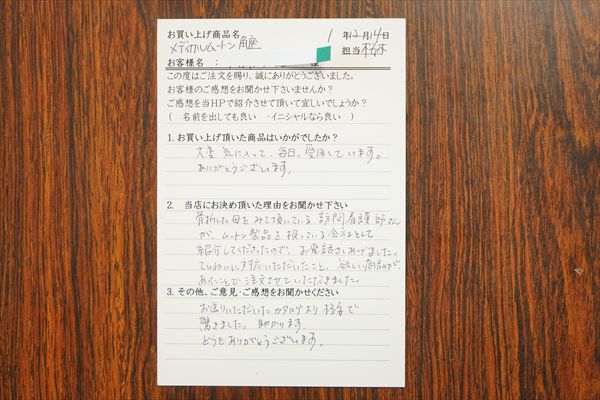 お買い上げ商品名
メディカルムートン 角座
1 年12月14日
担当
お客様名 : 様
この度はご注文を賜り、誠にありがとうございました。
お客様のご感想をお聞かせ下さいませんか?
ご感想を当HPで紹介させて頂いて宜しいでしょうか?
( 名前を出しても良い ・イニシャルなら良い )
1. お買い上げ頂いた商品はいかがでしたか?
大変 気に入って、毎日、愛用しています。
ありがとうございます。
2. 当店にお決め頂いた理由をお聞かせ下さい
骨折した母をみて頂いている 訪問看護師さん
が、ムートン製品を扱っている会社として
紹介してくださったので、お電話さしあげました。
ていねいに対応いただいたこと、欲しい商品が
あったことで注文させていただきました。
3. その他、ご意見・ご感想をお聞かせください
お送りいただいたカタログより 格安で
驚きました。助かります。
どうもありがとうございます。